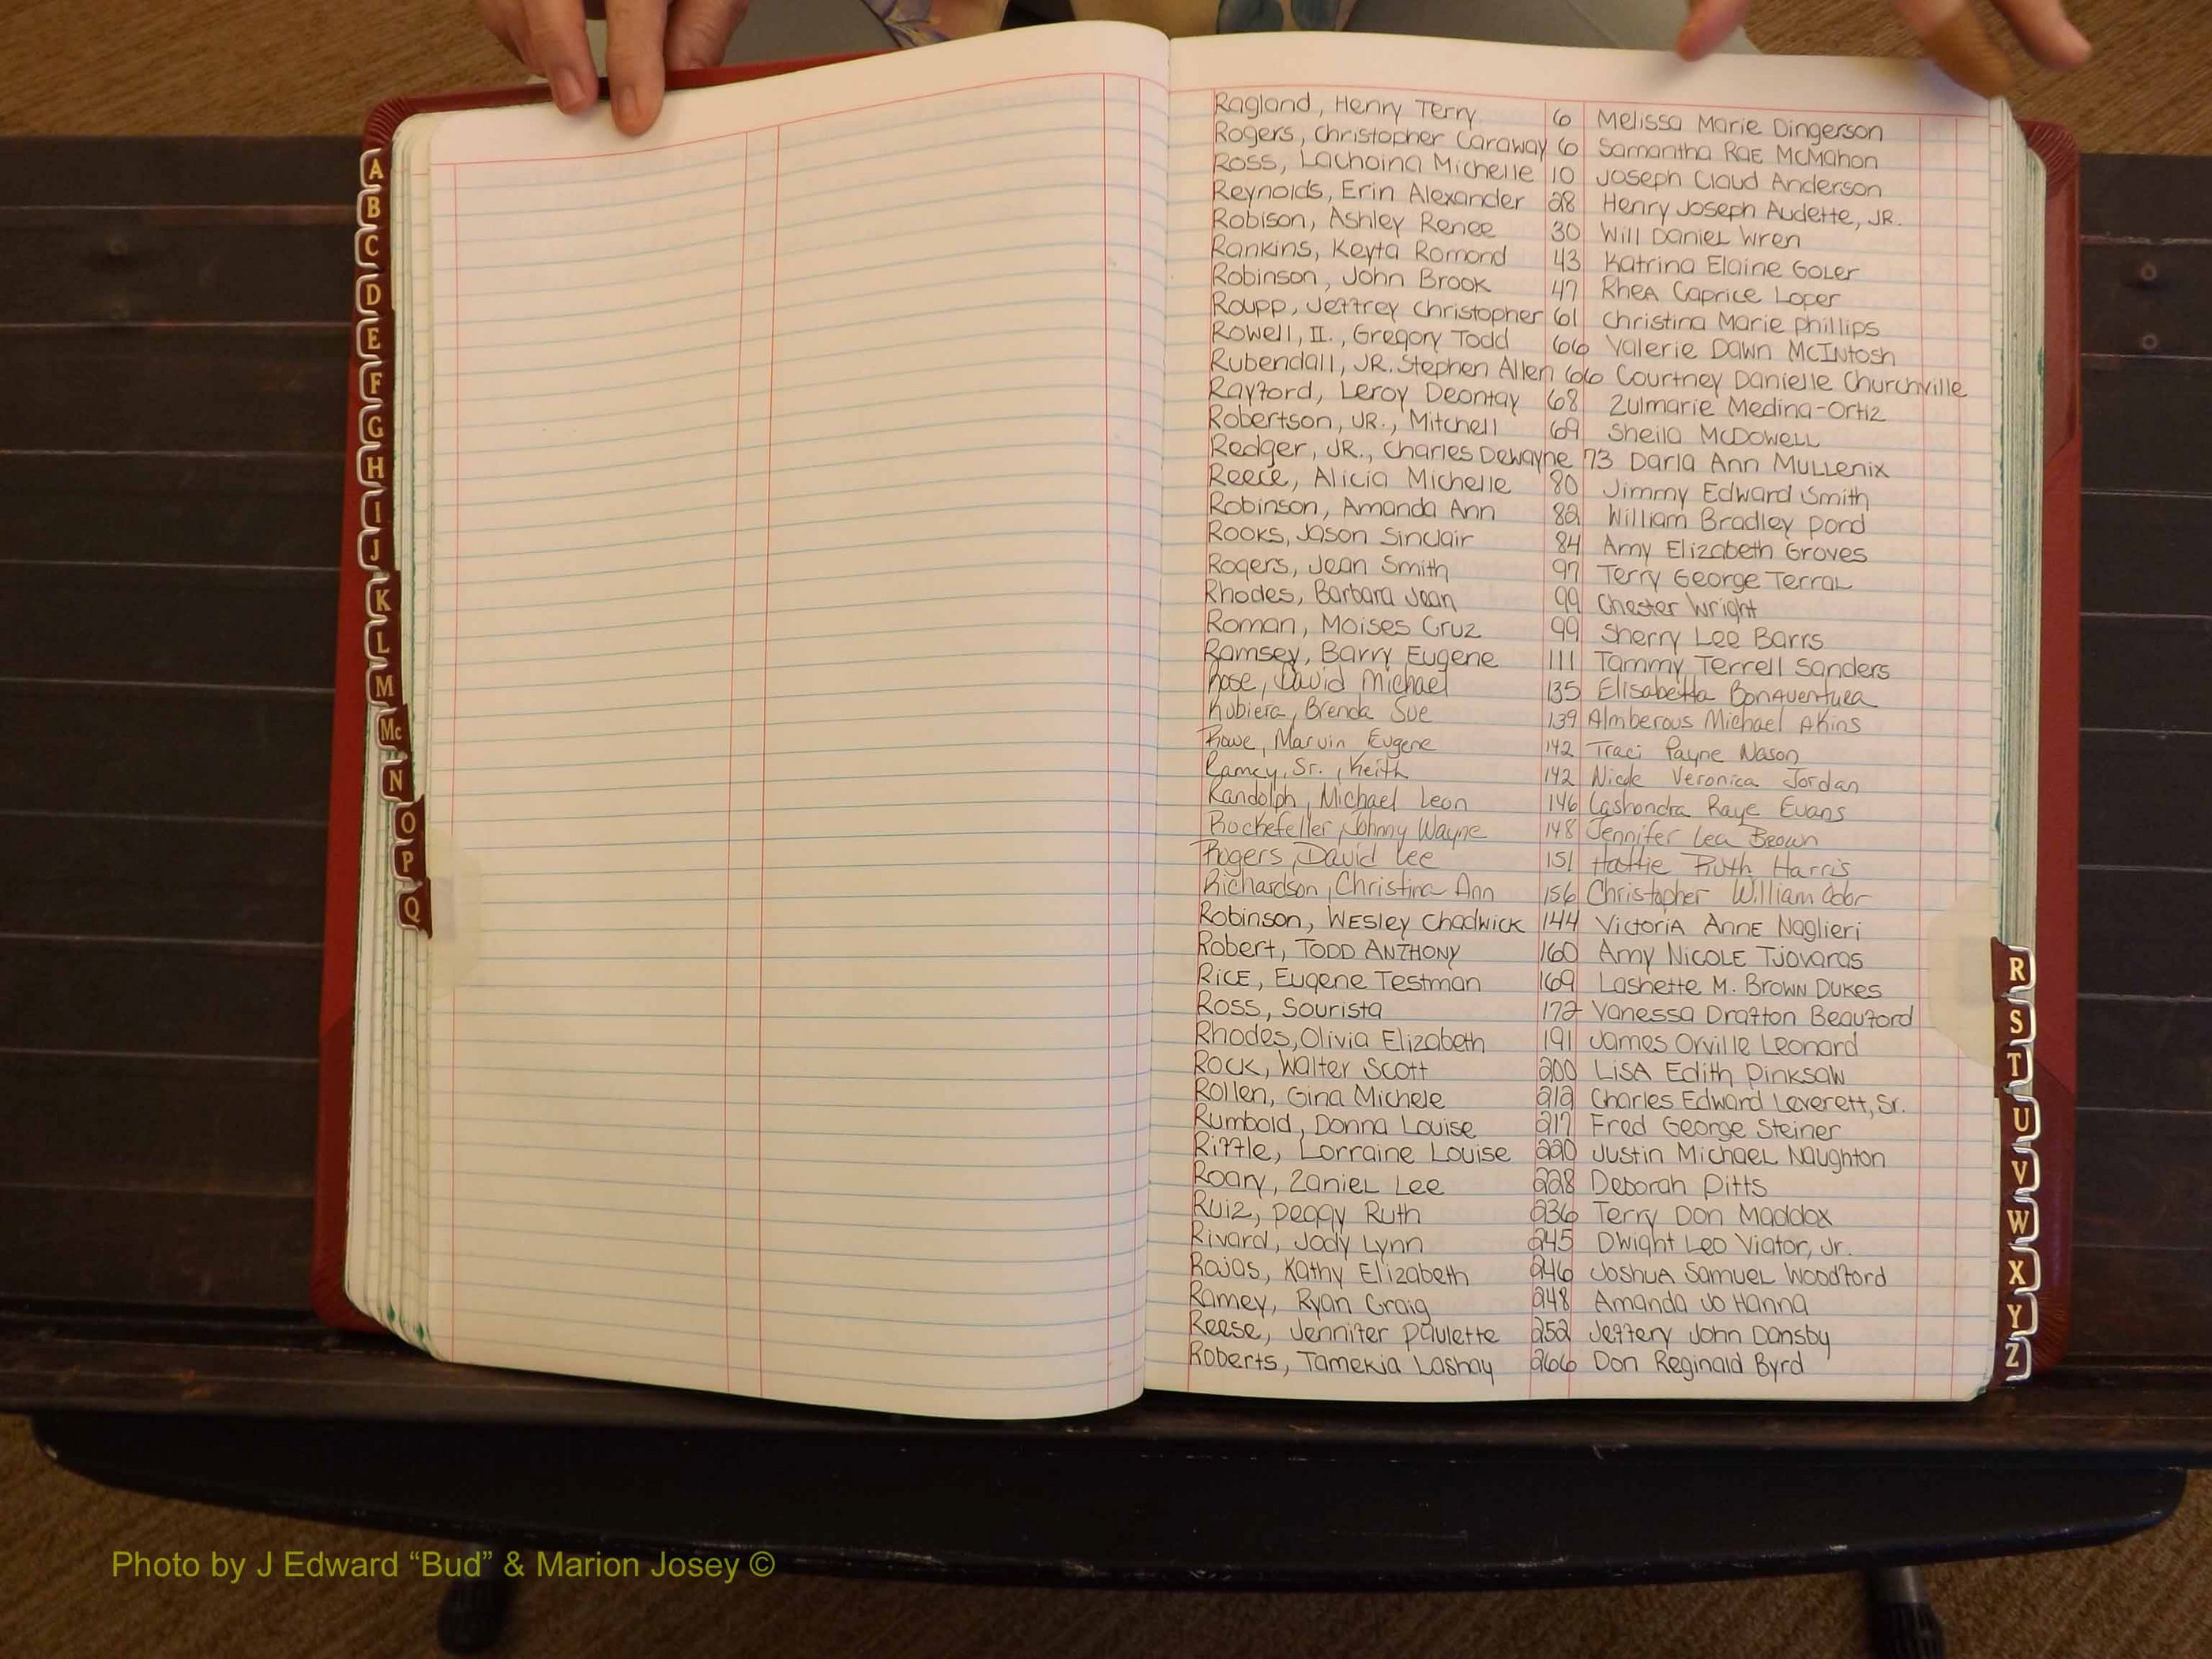 A
B
C
D
E
F
G
H
I
J
K
L
M
Mc
N
O
P
Q
Ragland, Henry Terry 6 Melissa Marie Dingerson
Rogers, Christopher Caraway 6 Samantha Rae McMahon
Ross, Lachoina Michelle 10 Joseph Claud Anderson
Reynolds, Erin Alexander 28 Henry Joseph Audette, JR.
Robison, Ashley Renee 30 Will Daniel Wren
Rankins, Keyta Romond 43 Katrina Elaine Goler
Robinson, John Brook 47 Rhea Caprice Loper
Roupp, Jeffrey Christopher 61 Christina Marie Phillips
Rowell, II., Gregory Todd 66 Valerie Dawn McIntosh
Rubendall, JR. Stephen Allen 66 Courtney Danielle Churchville
Rayford, Leroy Deontay 68 Zulmarie Medina-Ortiz
Robertson, JR., Mitchell 69 Sheila McDowell
Redger, JR., Charles Dewayne 73 Darla Ann Mullenix
Reece, Alicia Michelle 80 Jimmy Edward Smith
Robinson, Amanda Ann 82 William Bradley Pond
Rooks, Jason Sinclair 84 Amy Elizabeth Groves
Rogers, Jean Smith 97 Terry George Terral
Rhodes, Barbara Jean 99 Chester Wright
Roman, Moises Cruz 99 Sherry Lee Barrs
Ramsey, Barry Eugene 111 Tammy Terrell Sanders
Rose, David Michael 135 Elisabetta Bonaventura
Rubiera, Brenda Sue 139 Almberous Michael Akins
Rowe, Marvin Eugene 142 Traci Payne Nason
Ramey, Sr., Keith 142 Nicole Veronica Jordan
Randolph, Michael Leon 146 Lashondra Raye Evans
Rockefeller, Johnny Wayne 148 Jennifer Lea Brown
Rogers, David Lee 151 Hattie Ruth Harris
Richardson, Christina Ann 156 Christopher William Odor
Robinson, Wesley Chadwick 144 Victoria Anne Naglieri
Robert, Todd Anthony 160 Amy Nicole Tjovaras
Rice, Eugene Testman 169 Lashette M. Brown Dukes
Ross, Sourista 172 Vanessa Drafton Beauford
Rhodes, Olivia Elizabeth 191 James Orville Leonard
Rock, Walter Scott 200 Lisa Edith Pinksaw
Rollen, Gina Michele 212 Charles Edward Leverett, Sr.
Rumbold, Donna Louise 217 Fred George Steiner
Riffle, Lorraine Louise 220 Justin Michael Naughton
Roary, Zaniel Lee 228 Deborah Pitts
Ruiz, Peggy Ruth 236 Terry Don Maddox
Rivard, Jody Lynn 245 Dwight Leo Viator, Jr.
Rojas, Kathy Elizabeth 246 Joshua Samuel Woodford
Ramey, Ryan Craig 248 Amanda Jo Hanna
Reese, Jennifer Paulette 252 Jeffery John Dansby
Roberts, Tamekia Lashay 266 Don Reginald Byrd
R
S
T
U
V
W
X
Y
Z
Photo by J Edward “Bud” & Marion Josey ©